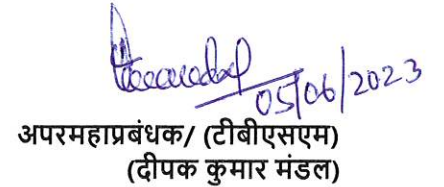 05/06/2023
अपरमहाप्रबंधक/ (टीबीएसएम)
(दीपक कुमार मंडल)